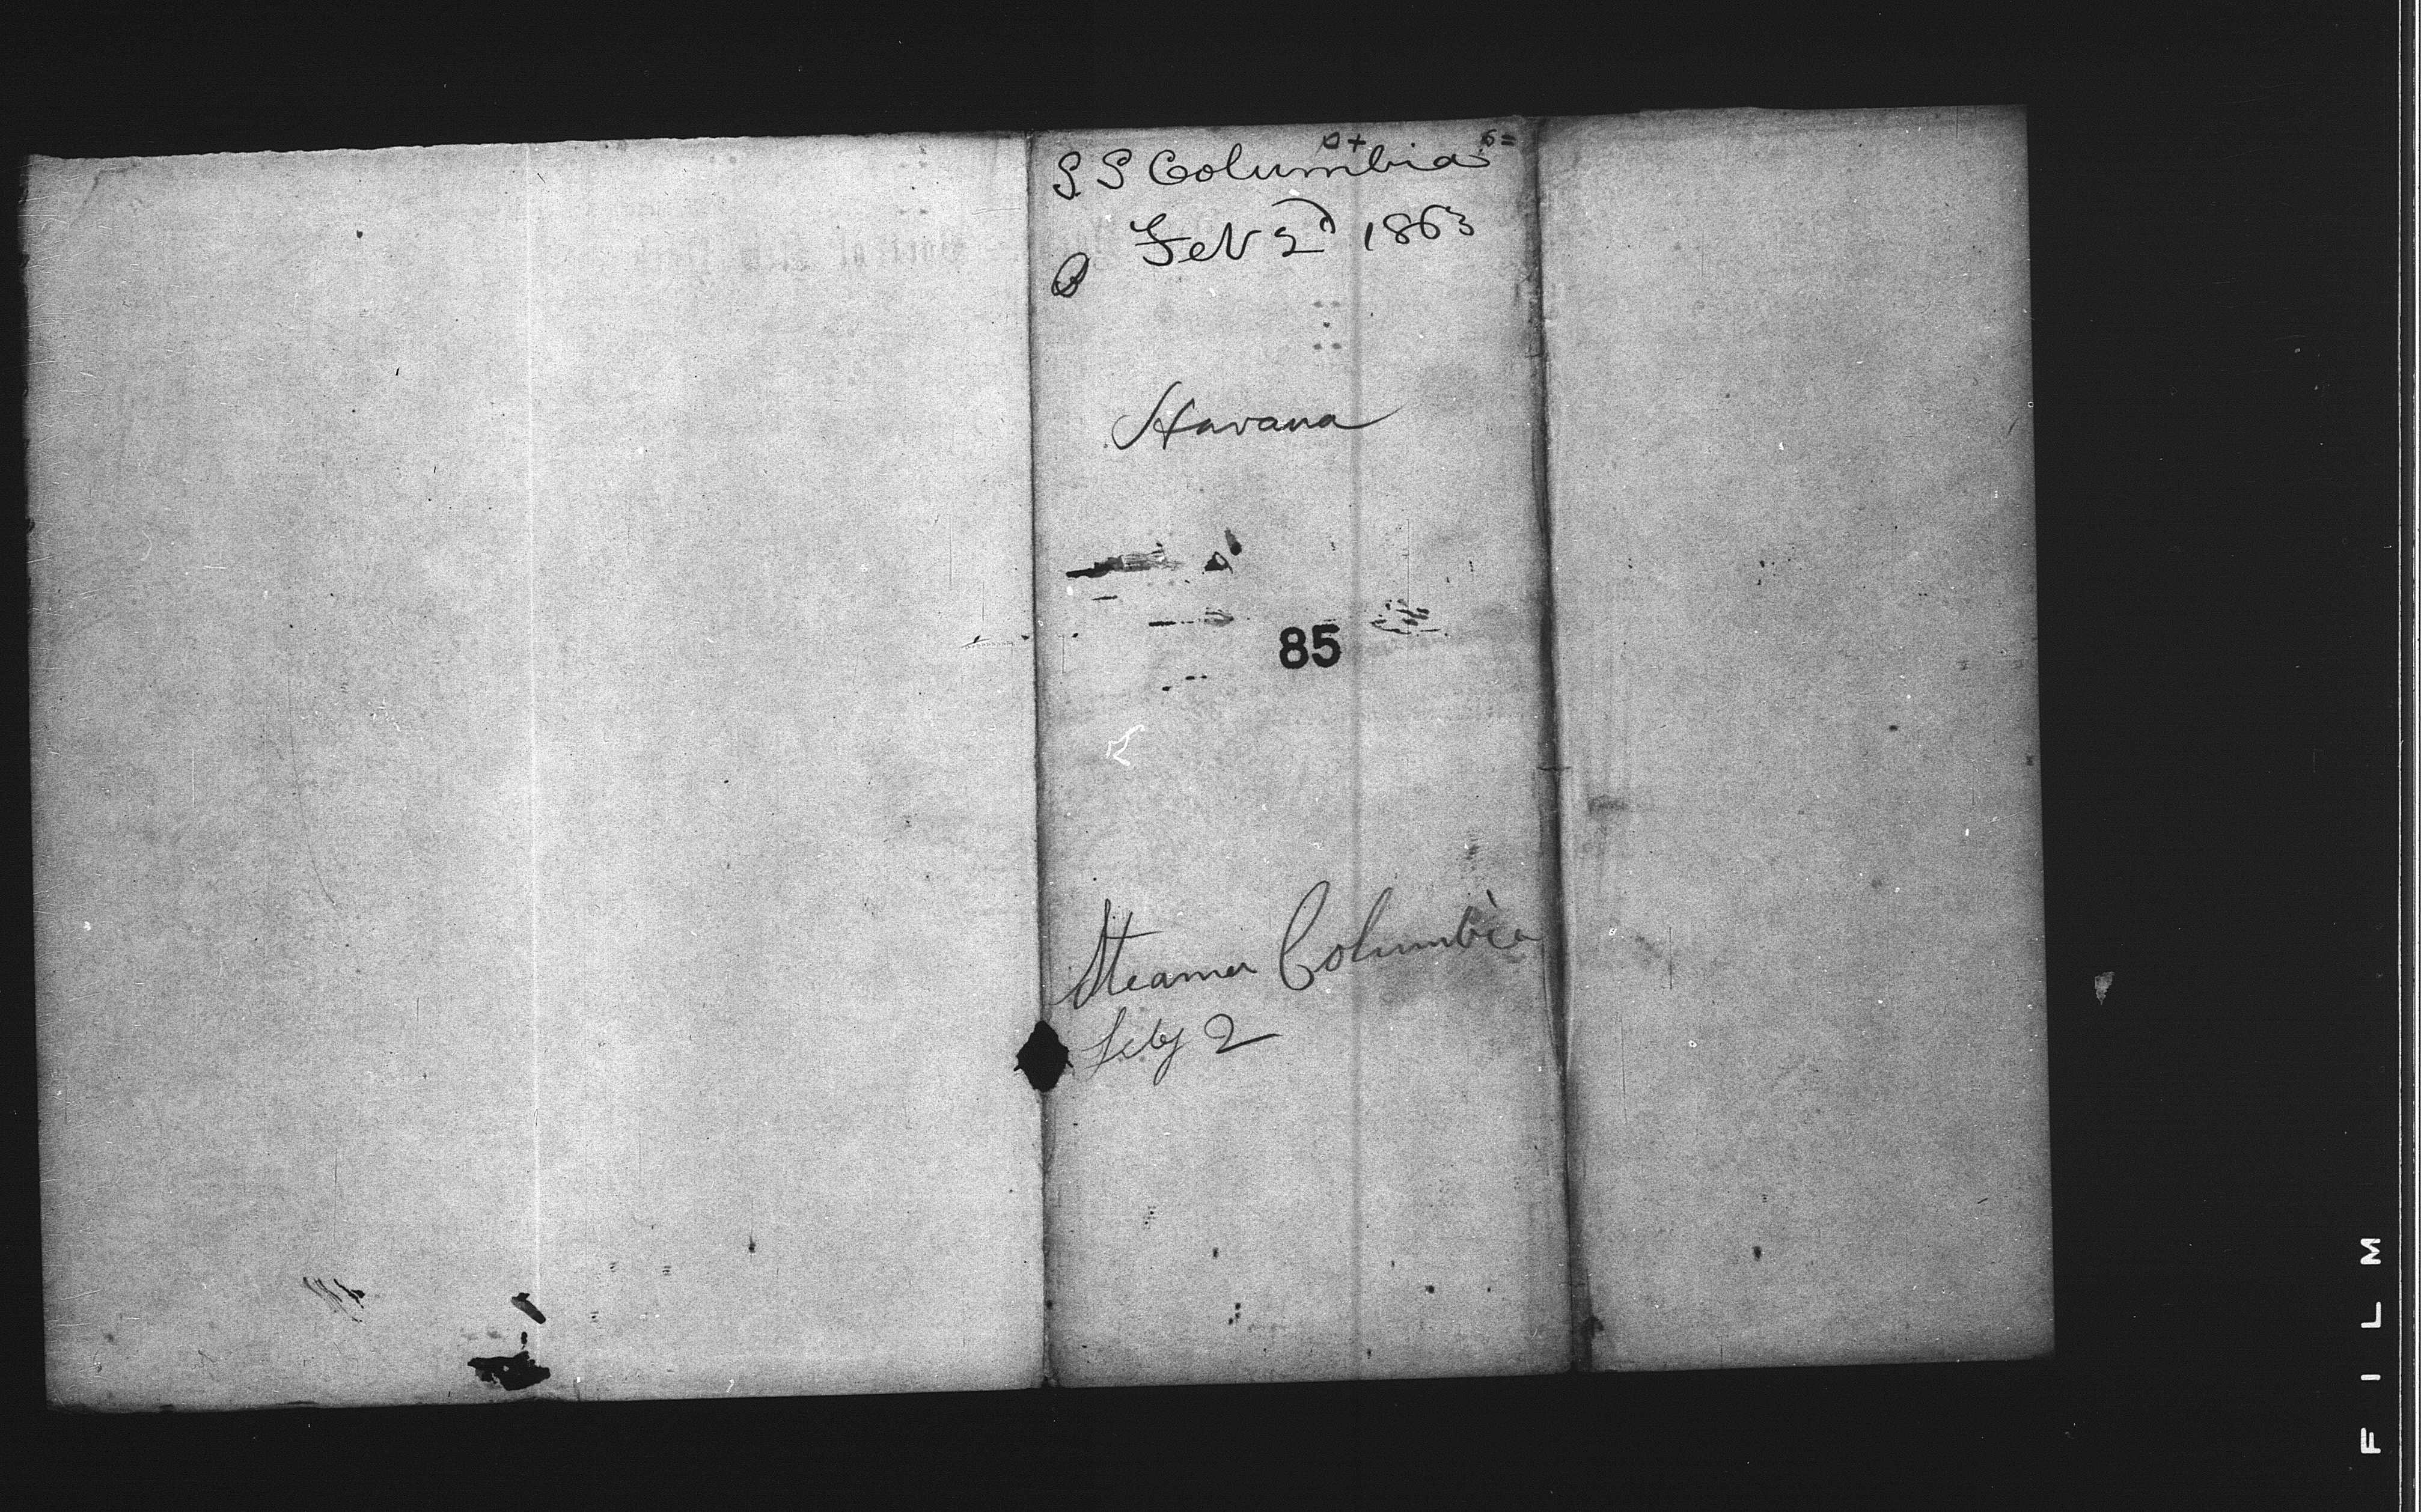 S S Columbia
Feb 2d 1863
Havana
85
Steamer Columbia
Feby 2
FILM